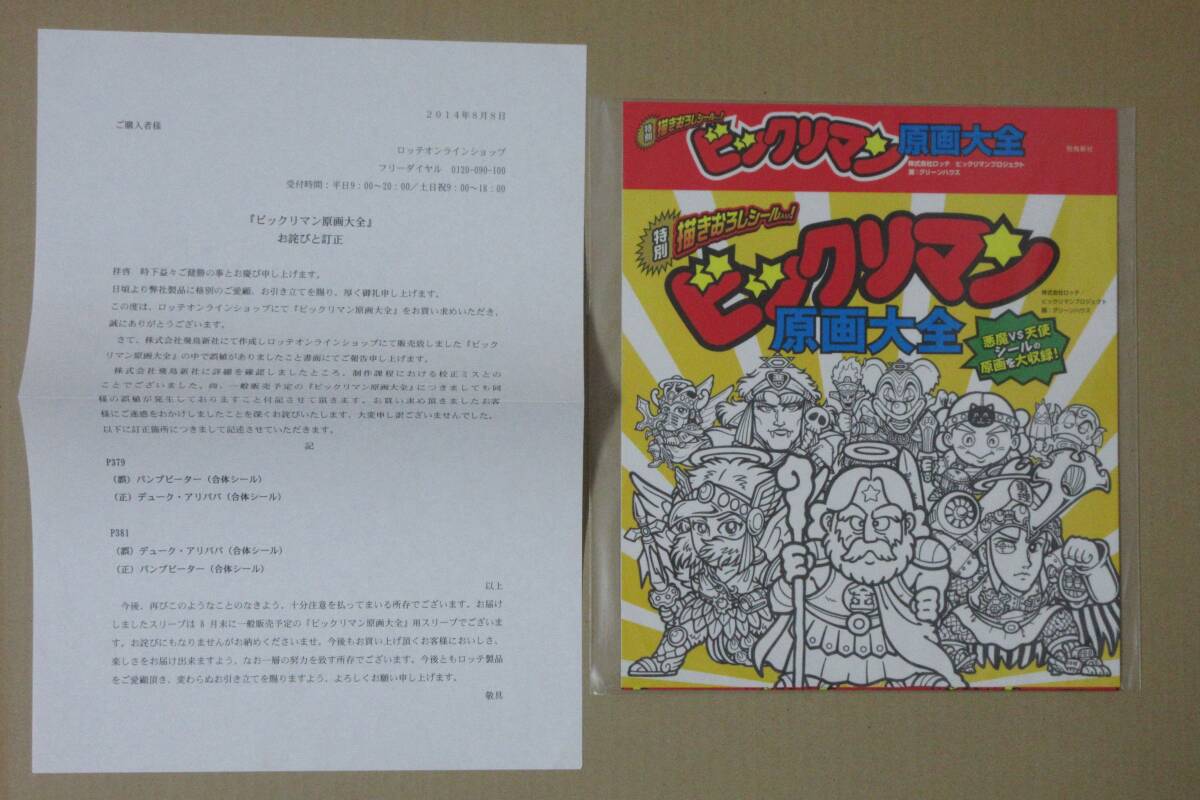 ２０１４年８月８日
ご購入者様
ロッテオンラインショップ
フリーダイヤル　0120-090-100
受付時間：平日9：00～20：00／土日祝9：00～18：00
『ビックリマン原画大全』
お詫びと訂正
拝啓　時下益々ご健勝の事とお慶び申し上げます。
日頃より弊社製品に格別のご愛顧、お引き立てを賜り、厚く御礼申し上げます。
この度は、ロッテオンラインショップにて『ビックリマン原画大全』をお買い求めいただき、
誠にありがとうございます。
さて、株式会社飛鳥新社にて作成しロッテオンラインショップにて販売致しました『ビック
リマン原画大全』の中で誤植がありましたこと書面にてご報告申し上げます。
株式会社飛鳥新社に詳細を確認しましたところ、制作課程における校正ミスとの
ことでございました。尚、一般販売予定の『ビックリマン原画大全』につきましても同
様の誤植が発生しておりますこと付記させて頂きます。お買い求め頂きましたお客
様にご迷惑をおかけしましたことを深くお詫びいたします。大変申し訳ございませんでした。
以下に訂正箇所につきまして記述させていただきます。
記
P379
（誤）パンプピーター（合体シール）
（正）デューク・アリババ（合体シール）
P381
（誤）デューク・アリババ（合体シール）
（正）パンプピーター（合体シール）
以上
今後、再びこのようなことのなきよう、十分注意を払ってまいる所存でございます。お届け
しましたスリーブは 8 月末に一般販売予定の『ビックリマン原画大全』用スリーブでございま
す。お詫びにもなりませんがお納めくださいませ。今後もお買い上げ頂くお客様においしさ、
楽しさをお届け出来ますよう、なお一層の努力を致す所存でございます。今後ともロッテ製品
をご愛顧頂き、変わらぬお引き立てを賜りますよう、よろしくお願い申し上げます。
敬具
特別 描きおろしシール入り!
ビックリマン原画大全
株式会社ロッテ　ビックリマンプロジェクト
画：グリーンハウス
飛鳥新社
特別 描きおろしシール入り!
ビックリマン
原画大全
株式会社ロッテ・
ビックリマンプロジェクト
画：グリーンハウス
悪魔VS天使
シールの
原画を大収録!